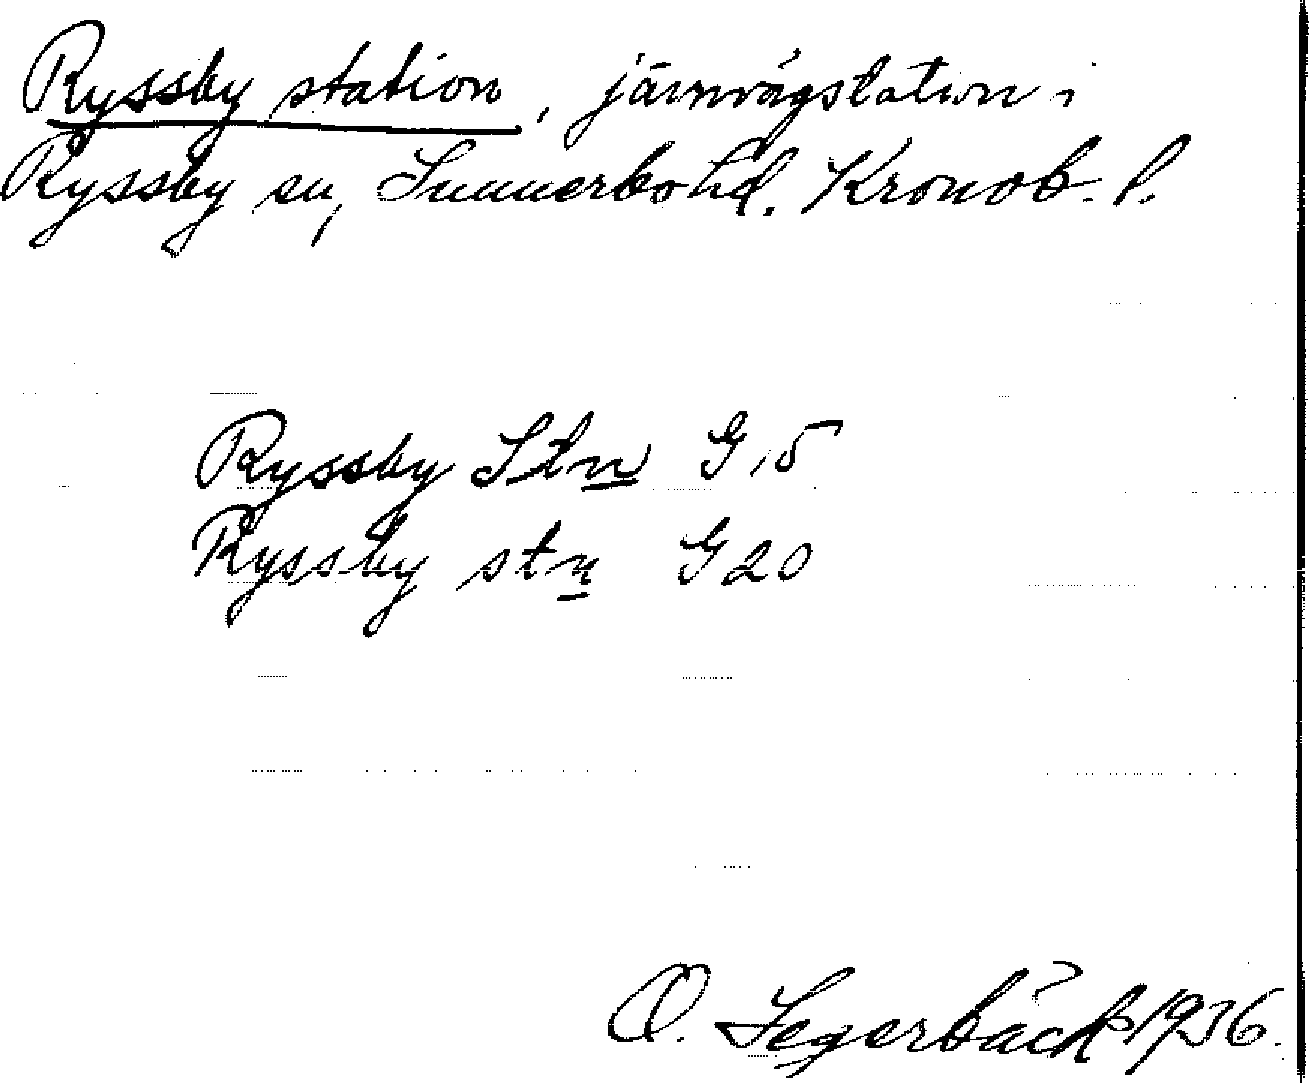 Ryssby station, järnvägstation i
Ryssby sn, Sunnerbo hd. Kronob. l.
Ryssby Stn G 15
Ryssby stn G 20
O. Segerbäck 1936.